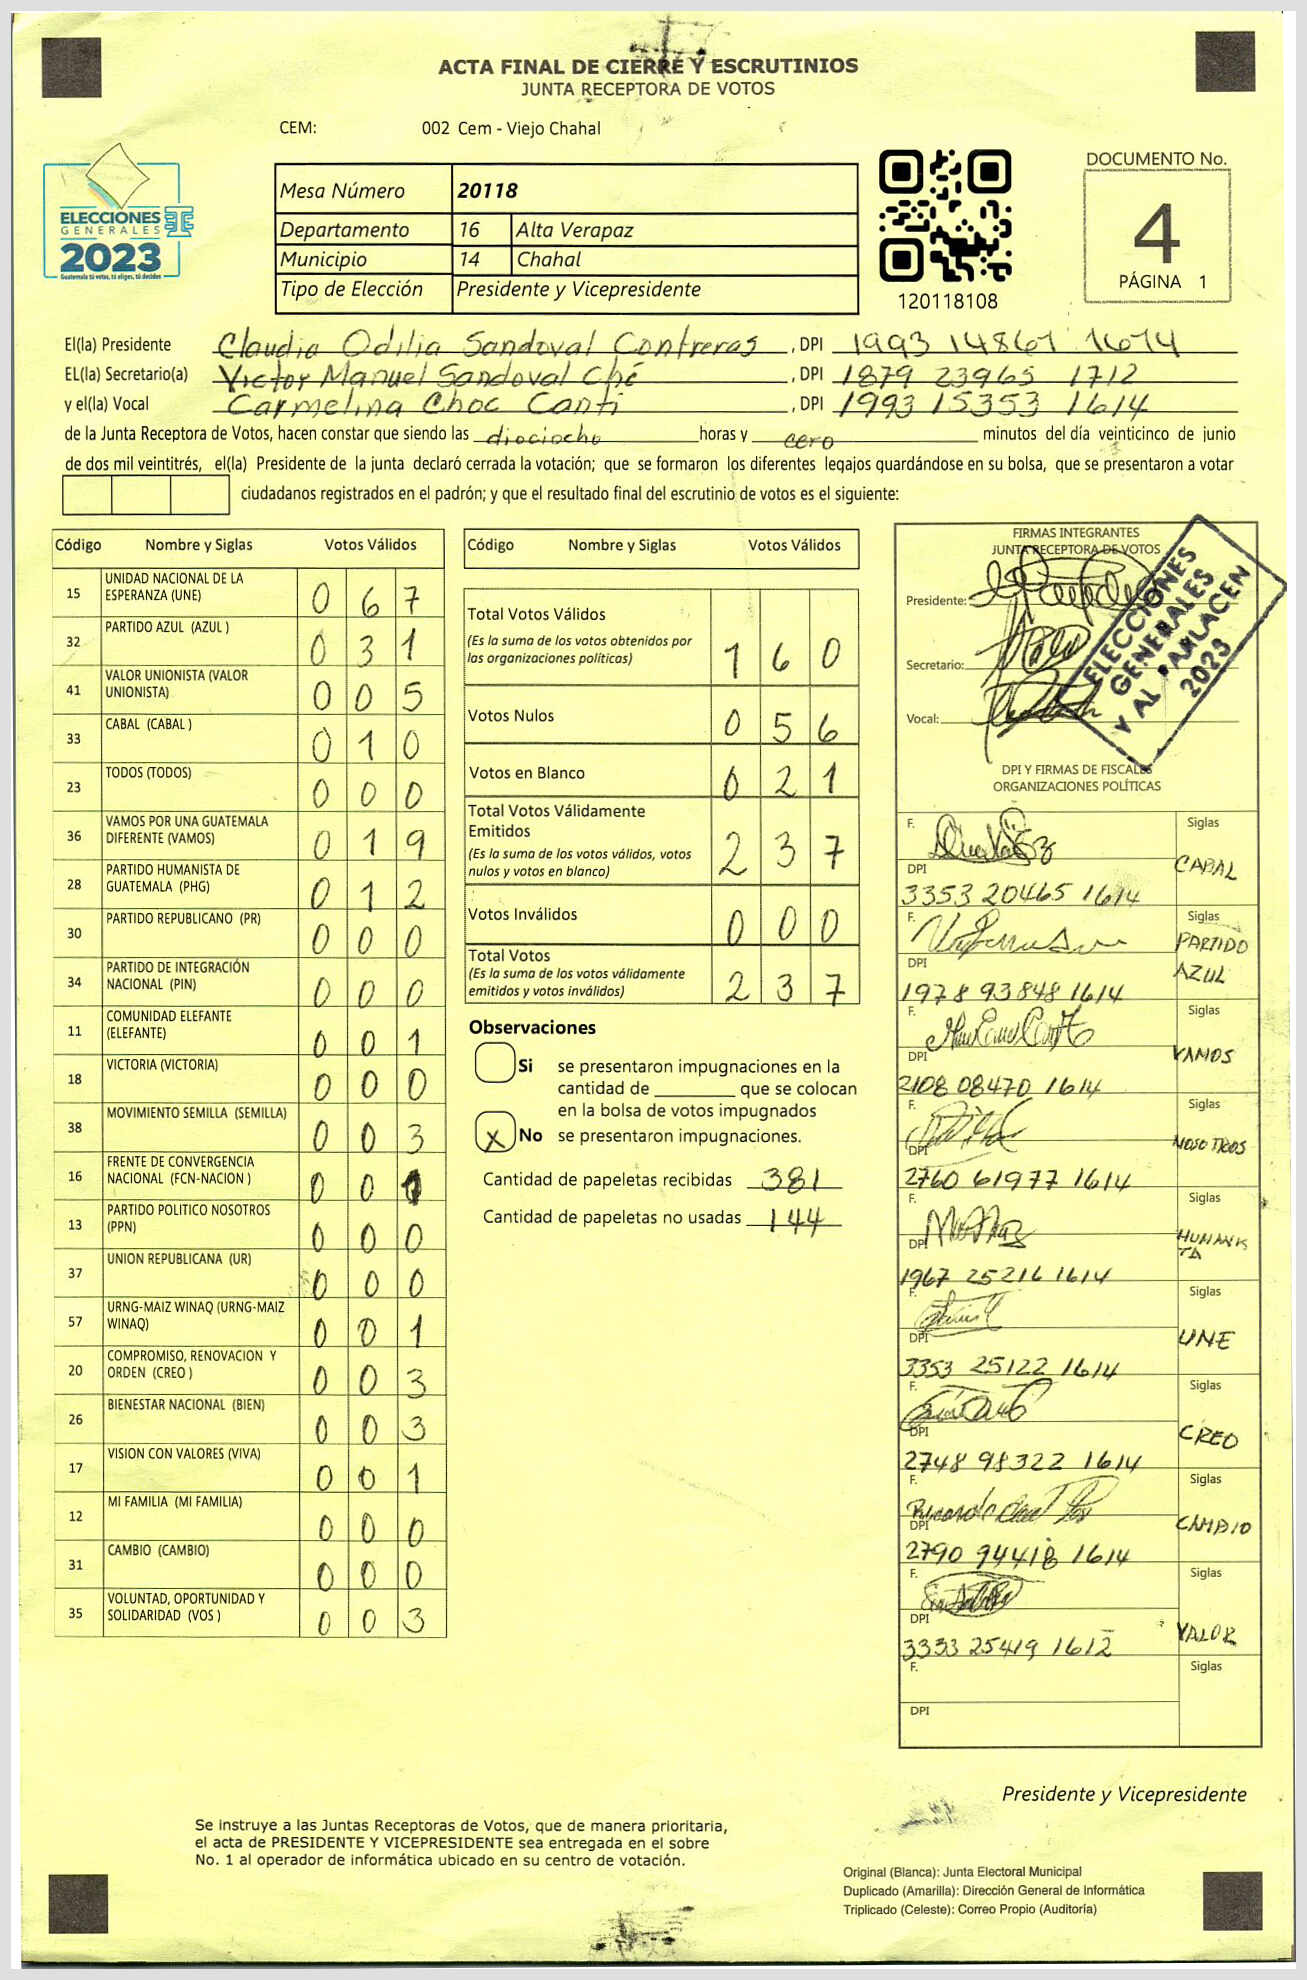 ACTA FINAL DE CIERRE Y ESCRUTINIOS
JUNTA RECEPTORA DE VOTOS
CEM: 002 Cem - Viejo Chahal
ELECCIONES
GENERALES
2023
Guatemala tú votas, tú eliges, tú decides
Mesa Número 20118
Departamento 16 Alta Verapaz
Municipio 14 Chahal
Tipo de Elección Presidente y Vicepresidente
120118108
DOCUMENTO No.
4
PÁGINA 1
El(la) Presidente Claudia Odilia Sandoval Contreras , DPI 1993 14867 1614
EL(la) Secretario(a) Victor Manuel Sandoval Ché , DPI 1879 23965 1712
y el(la) Vocal Carmelina Choc Canti , DPI 1993 15353 1614
de la Junta Receptora de Votos, hacen constar que siendo las diociocho horas y cero minutos del día veinticinco de junio
de dos mil veintitrés, el(la) Presidente de la junta declaró cerrada la votación; que se formaron los diferentes legajos guardándose en su bolsa, que se presentaron a votar
ciudadanos registrados en el padrón; y que el resultado final del escrutinio de votos es el siguiente:
Código Nombre y Siglas Votos Válidos
15 UNIDAD NACIONAL DE LA ESPERANZA (UNE) 0 6 7
32 PARTIDO AZUL (AZUL ) 0 3 1
41 VALOR UNIONISTA (VALOR UNIONISTA) 0 0 5
33 CABAL (CABAL ) 0 1 0
23 TODOS (TODOS) 0 0 0
36 VAMOS POR UNA GUATEMALA DIFERENTE (VAMOS) 0 1 9
28 PARTIDO HUMANISTA DE GUATEMALA (PHG) 0 1 2
30 PARTIDO REPUBLICANO (PR) 0 0 0
34 PARTIDO DE INTEGRACIÓN NACIONAL (PIN) 0 0 0
11 COMUNIDAD ELEFANTE (ELEFANTE) 0 0 1
18 VICTORIA (VICTORIA) 0 0 0
38 MOVIMIENTO SEMILLA (SEMILLA) 0 0 3
16 FRENTE DE CONVERGENCIA NACIONAL (FCN-NACION ) 0 0 1
13 PARTIDO POLITICO NOSOTROS (PPN) 0 0 0
37 UNION REPUBLICANA (UR) 0 0 0
57 URNG-MAIZ WINAQ (URNG-MAIZ WINAQ) 0 0 1
20 COMPROMISO, RENOVACION Y ORDEN (CREO ) 0 0 3
26 BIENESTAR NACIONAL (BIEN) 0 0 3
17 VISION CON VALORES (VIVA) 0 0 1
12 MI FAMILIA (MI FAMILIA) 0 0 0
31 CAMBIO (CAMBIO) 0 0 0
35 VOLUNTAD, OPORTUNIDAD Y SOLIDARIDAD (VOS ) 0 0 3
Código Nombre y Siglas Votos Válidos
Total Votos Válidos
(Es la suma de los votos obtenidos por
las organizaciones políticas) 1 6 0
Votos Nulos 0 5 6
Votos en Blanco 0 2 1
Total Votos Válidamente
Emitidos
(Es la suma de los votos válidos, votos
nulos y votos en blanco) 2 3 7
Votos Inválidos 0 0 0
Total Votos
(Es la suma de los votos válidamente
emitidos y votos inválidos) 2 3 7
Observaciones
Si se presentaron impugnaciones en la
cantidad de ________ que se colocan
en la bolsa de votos impugnados
X No se presentaron impugnaciones.
Cantidad de papeletas recibidas 381
Cantidad de papeletas no usadas 144
FIRMAS INTEGRANTES
JUNTA RECEPTORA DE VOTOS
Presidente:
Secretario:
Vocal:
ELECCIONES
GENERALES
Y AL PARLACEN
2023
DPI Y FIRMAS DE FISCALES
ORGANIZACIONES POLÍTICAS
F. Siglas
DPI CABAL
3353 20465 1614
F. Siglas
DPI PARTIDO AZUL
1978 93848 1614
F. Siglas
DPI VAMOS
2108 08470 1614
F. Siglas
DPI NOSOTROS
2760 61977 1614
F. Siglas
DPI HUMANISTA
1967 25216 1614
F. Siglas
DPI UNE
3353 25122 1614
F. Siglas
DPI CREO
2748 98322 1614
F. Siglas
DPI CAMBIO
2790 94418 1614
F. Siglas
DPI VALOR
3353 25419 1612
F. Siglas
DPI
Presidente y Vicepresidente
Se instruye a las Juntas Receptoras de Votos, que de manera prioritaria,
el acta de PRESIDENTE Y VICEPRESIDENTE sea entregada en el sobre
No. 1 al operador de informática ubicado en su centro de votación.
Original (Blanca): Junta Electoral Municipal
Duplicado (Amarilla): Dirección General de Informática
Triplicado (Celeste): Correo Propio (Auditoría)